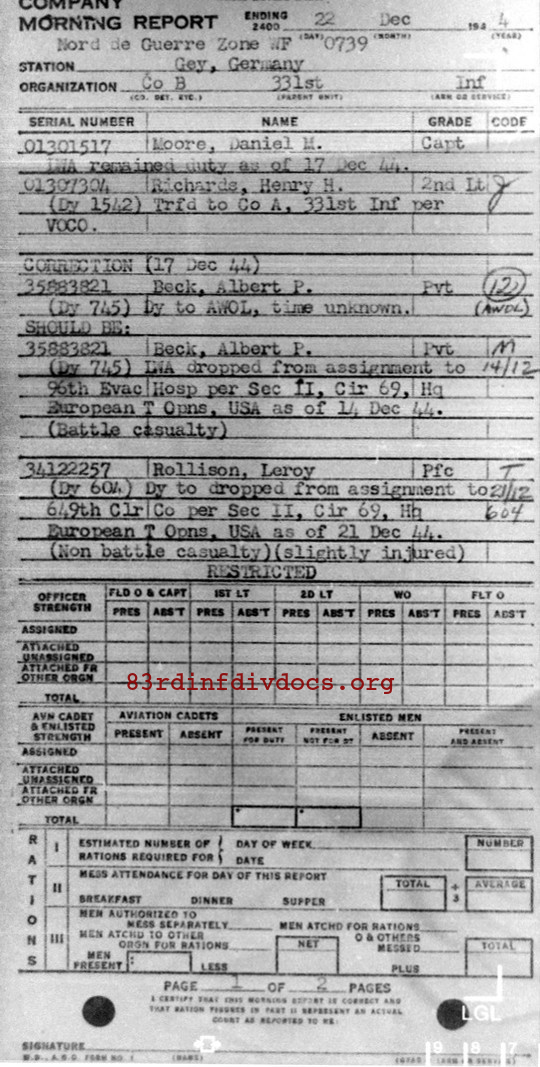 COMPANY
MORNING REPORT ENDING 2400 22 Dec 194 4
(DAY) (MONTH) (YEAR)
Nord de Guerre Zone WF 0739
STATION Gey, Germany
ORGANIZATION Co B 331st Inf
(CO. DET. ETC.) (PARENT UNIT) (ARM OR SERVICE)
SERIAL NUMBER NAME GRADE CODE
01301517 Moore, Daniel M. Capt
LWA remained duty as of 17 Dec 44.
01307304 Richards, Henry H. 2nd Lt
(Dy 1542) Trfd to Co A, 331st Inf per
VOCO.
CORRECTION (17 Dec 44)
35883821 Beck, Albert P. Pvt 12
(Dy 745) Dy to AWOL, time unknown. (AWOL)
SHOULD BE:
35883821 Beck, Albert P. Pvt M
(Dy 745) LWA dropped from assignment to 14/12
96th Evac Hosp per Sec II, Cir 69, Hq
European T Opns, USA as of 14 Dec 44.
(Battle casualty)
34122257 Rollison, Leroy Pfc T
(Dy 604) Dy to dropped from assignment to 21/12
649th Clr Co per Sec II, Cir 69, Hq 604
European T Opns, USA as of 21 Dec 44.
(Non battle casualty)(slightly injured)
RESTRICTED
OFFICER STRENGTH FLD O & CAPT 1ST LT 2D LT WO FLT O
PRES ABS'T PRES ABS'T PRES ABS'T PRES ABS'T PRES ABS'T
ASSIGNED
ATTACHED UNASSIGNED
ATTACHED FR OTHER ORGN
83rdinfdivdocs.org
TOTAL
AVN CADET & ENLISTED STRENGTH AVIATION CADETS ENLISTED MEN
PRESENT ABSENT PRESENT FOR DUTY PRESENT NOT FOR DY ABSENT PRESENT AND ABSENT
ASSIGNED
ATTACHED UNASSIGNED
ATTACHED FR OTHER ORGN
TOTAL
RATIONS
I ESTIMATED NUMBER OF RATIONS REQUIRED FOR DAY OF WEEK NUMBER
DATE
II MESS ATTENDANCE FOR DAY OF THIS REPORT TOTAL ÷ 3 AVERAGE
BREAKFAST DINNER SUPPER
III MEN AUTHORIZED TO MESS SEPARATELY MEN ATCHD FOR RATIONS
MEN ATCHD TO OTHER ORGN FOR RATIONS NET O & OTHERS MESSED TOTAL
MEN PRESENT LESS PLUS
PAGE 1 OF 2 PAGES
I CERTIFY THAT THIS MORNING REPORT IS CORRECT AND
THAT RATION FIGURES IN PART II REPRESENT AN ACTUAL
COUNT AS REPORTED TO ME.
LGL
SIGNATURE
W.D., A.G.O. FORM NO. 1 (NAME) (GRADE) (ARM OR SERVICE)
9 8 7